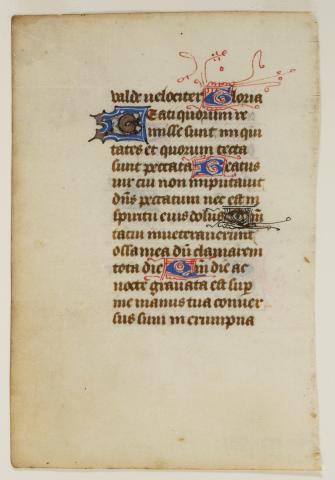 valde velociter Gloria
Beati quorum re
misse sunt iniqui
tates et quorum tecta
sunt peccata Beatus
vir cui non imputavit
dñs peccatum nec est in
spiritu eius dolus Qm̃
tacui inveteraverunt
ossa mea dũ clamarem
tota die Qm̃ die ac
nocte gravata est sup̃
me manus tua conver
sus sum in erumpna